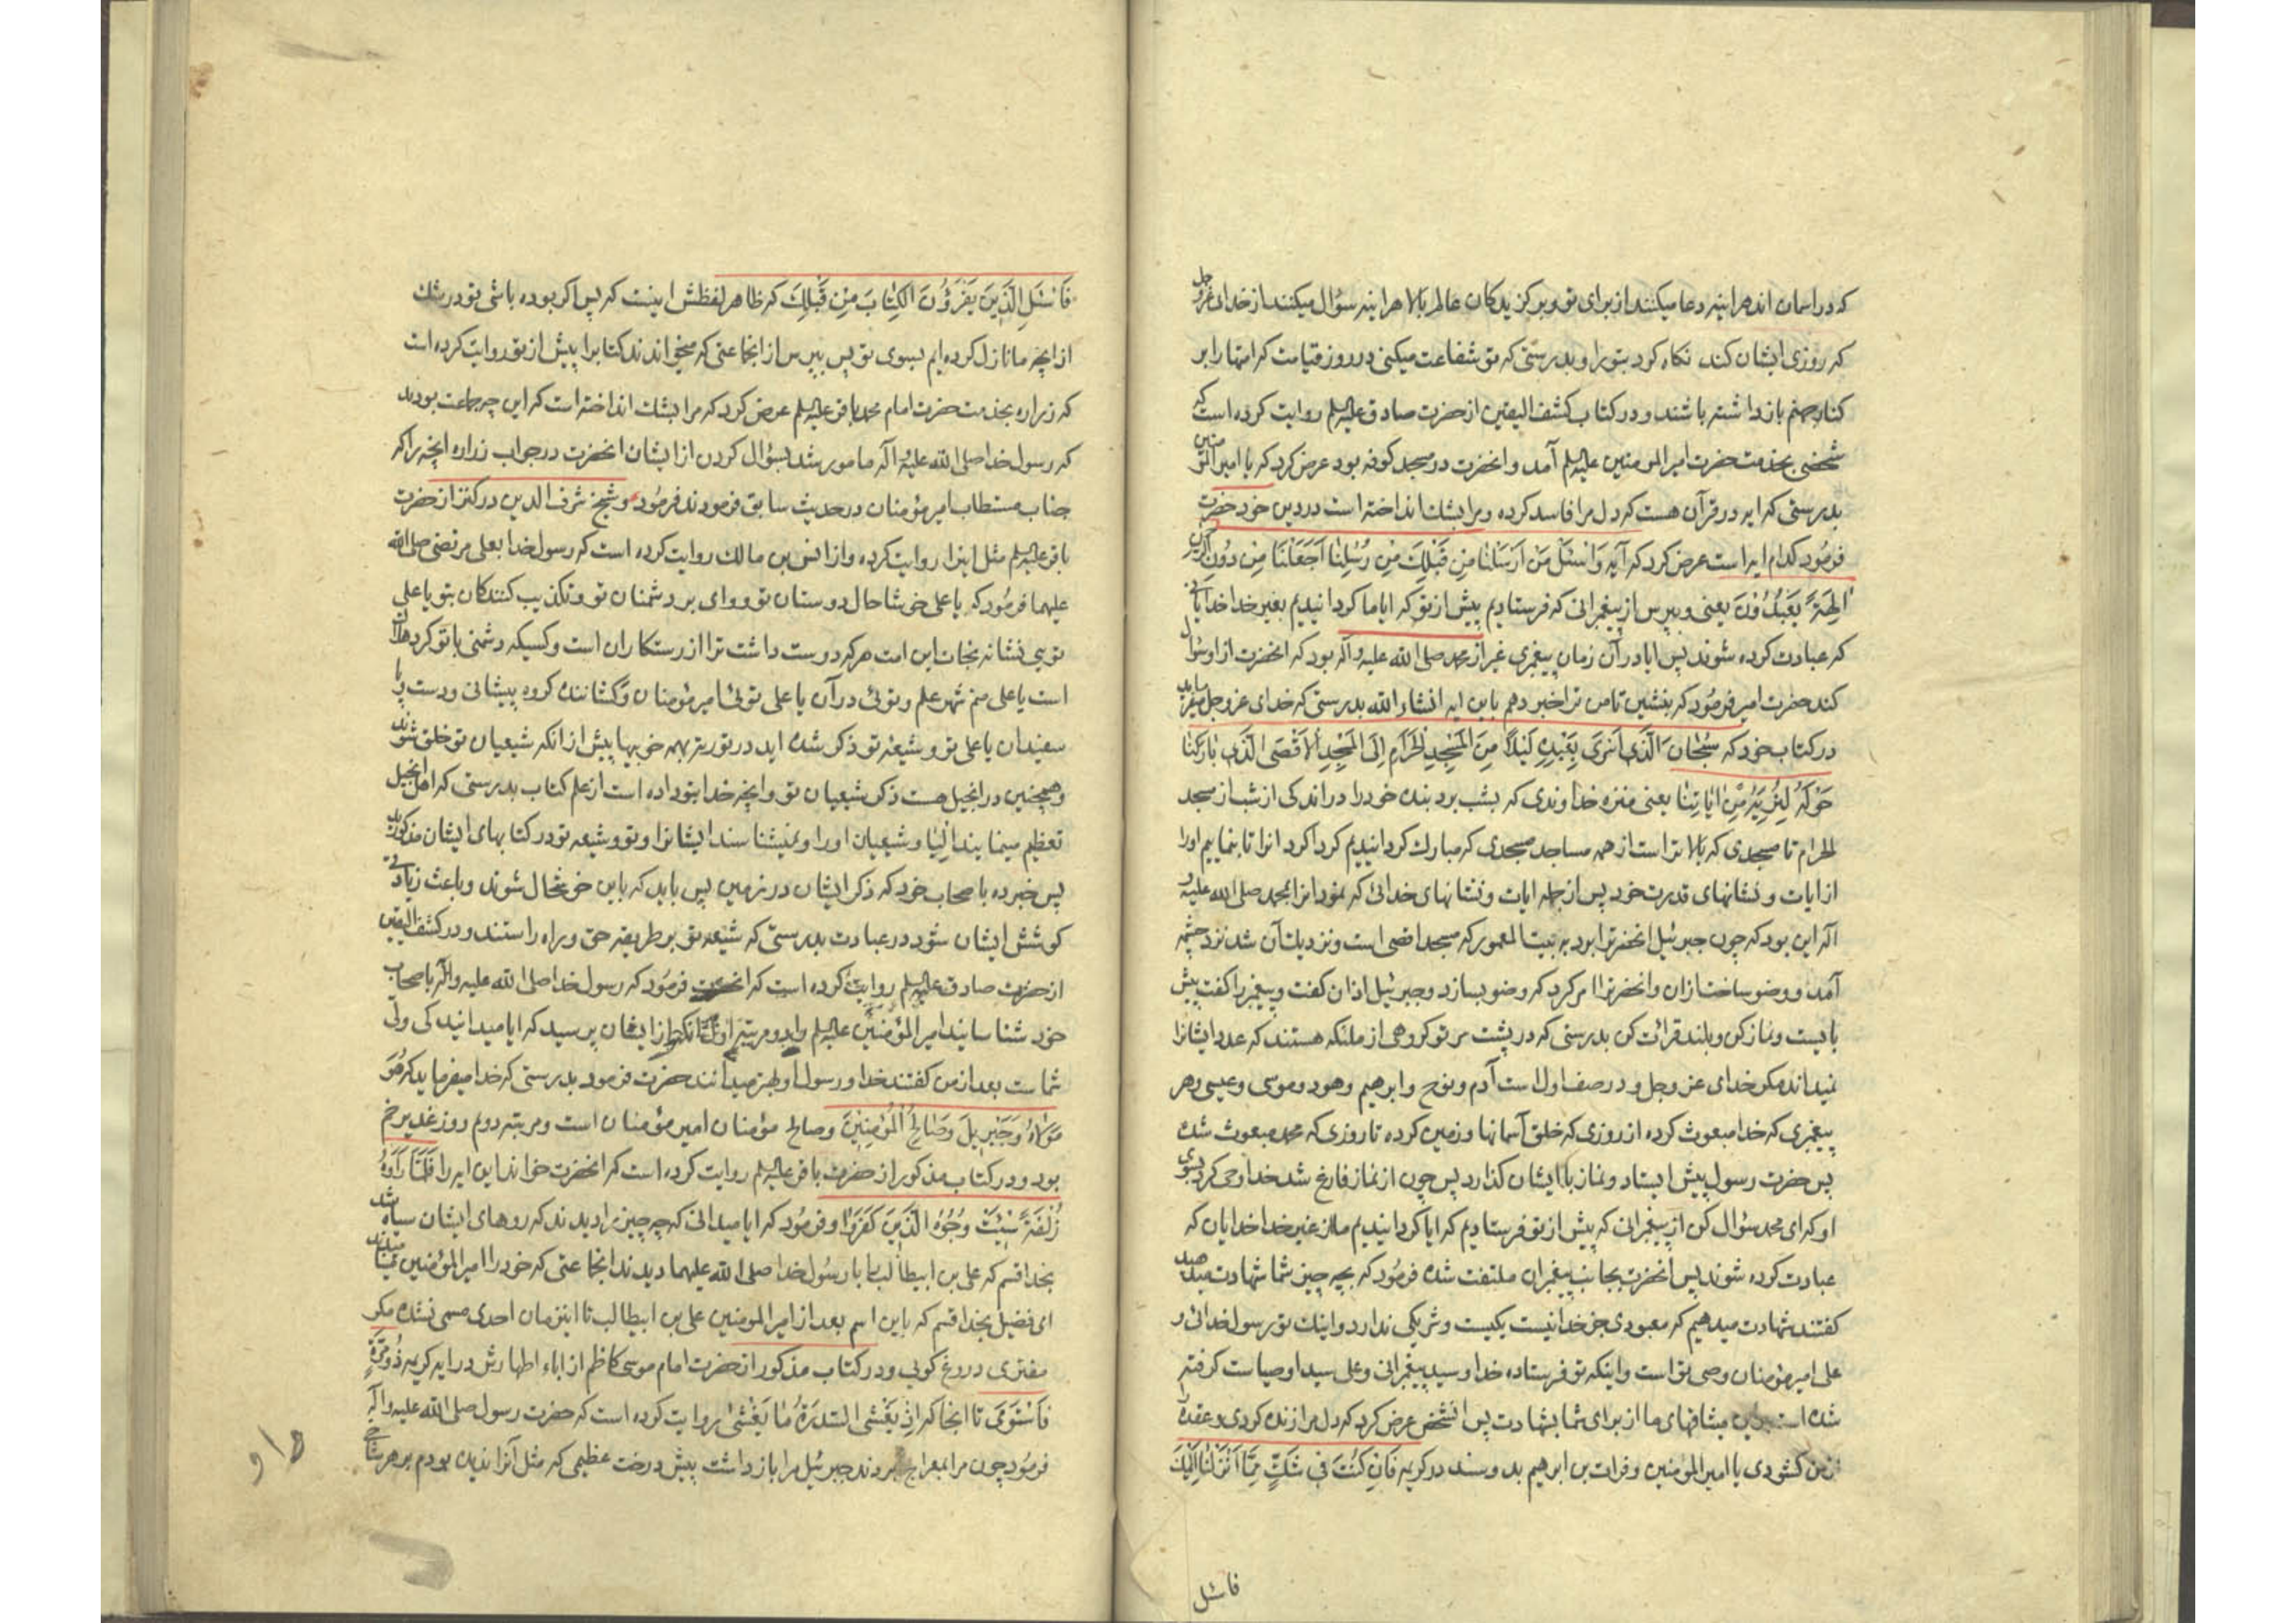 که در اسمان اند هراینه دعا میکنند از برای تو و برکزیدکان عالم بالا هراینه سؤال میکنند از خدای عزوجل
که روزی ایشان کند نکاه کردن بتو را و بدرستی که تو شفاعت میکنی در روز قیامت که امتها را بر
کنار جهنم باز داشته باشند و در کتاب کشف الیقین از حضرت صادق علیه السلم روایت کرده است که
شخصی بخدمت حضرت امیر المومنین علیه السلم آمد و انحضرت در مسجد کوفه بود عرض کرد که یا امیر المؤمنین
بدرستی که ایه در قرآن هست که دل مرا فاسد کرده و مرا بشک انداخته است در دین خود حضرت
فرمود کدام ایه است عرض کرد که آیه وَاسْئَلْ مَنْ اَرْسَلْنَا مِنْ قَبْلِكَ مِنْ رُسُلِنَا اَجَعَلْنَا مِنْ دُونِ الرَّحْمٰنِ
اٰلِهَةً يُعْبَدُونَ یعنی و بپرس از پیغمبرانی که فرستادیم پیش از تو که ایا ما کردانیدیم بغیر خدا خدایانی
که عبادت کرده شوند پس ایا در آن زمان پیغمبری غیر از محمد صلی الله علیه و آله بود که انحضرت از او سؤال
کند حضرت امیر فرمود که بنشین تا من ترا خبر دهم باین ایه انشاء الله بدرستی که خدای عزوجل میفرماید
در کتاب خود که سُبْحَانَ الَّذِی اَسْرٰی بِعَبْدِهِ لَیْلاً مِنَ الْمَسْجِدِ الْحَرَامِ اِلَی الْمَسْجِدِ الْاَقْصَی الَّذِی بَارَکْنَا
حَوْلَهُ لِنُرِیَهُ مِنْ اٰیَاتِنَا یعنی منزه خداوندی که بشب برد بنده خود را در اندکی از شب از مسجد
الحرام تا مسجدی که بالاتر است از همه مساجد مسجدی که مبارک کردانیدیم کرداکرد انرا تا بنماییم او را
از ایات و نشانهای قدرت خود پس از جمله ایات و نشانهای خدائی که نمود انرا بمحمد صلی الله علیه و
آله این بود که چون جبرئیل انحضرترا برد به بیت المعمور که مسجد اقصی است و نزدیک آن شد نزد چشمه
آمد و وضو ساخت ازان و انحضرترا امر کرد که وضو بسازد و جبرئیل اذان کفت و پیغمبر را کفت پیش
بایست و نماز کن و بلند قرائت کن بدرستی که در پشت سر تو کروهی از ملئکه هستند که عدد ایشانرا
نمیداند مکر خدای عز وجل و در صف اول است آدم و نوح و ابرهیم و هود و موسی و عیسی و هر
پیغمبری که خدا مبعوث کرده از روزی که خلق آسمانها و زمین کرده تا روزی که محمد مبعوث شده
پس حضرت رسول پیش ایستاد و نماز با ایشان کذارد پس چون از نماز فارغ شد خدا وحی کرد بسوی
او که ای محمد سؤال کن از پیغمبرانی که پیش از تو فرستادیم که ایا کردانیدیم ما از غیر خدا خدایان که
عبادت کرده شوند پس انحضرت بجانب پیغمبران ملتفت شده فرمود که بچه چیز شما شهادت میدهید
کفتند شهادت میدهیم که معبودی جز خدا نیست یکیست و شریکی ندارد و اینک تو رسول خدائی و
علی امیر مؤمنان وصی تو است و اینکه تو فرستاده خدا و سید پیغمبرانی و علی سید اوصیاست کرفته
شده است میثاقهای ما از برای شما بشهادت پس انشخص عرض کرد که دل مرا زنده کردی و عقده
از من کشودی یا امیر المومنین و فرات بن ابرهیم بدو سند در کریمه فَاِنْ كُنْتَ فِی شَكٍّ مِمَّا اَنْزَلْنَا اِلَیْكَ
فاسئل
فَاسْئَلِ الَّذِینَ یَقْرَؤُنَ الْکِتَابَ مِنْ قَبْلِكَ که ظاهر لفظش اینست که پس اکر بوده باشی تو در شک
از انچه ما نازل کرده ایم بسوی تو پس بپرس از انجماعتی که میخواندند کتابرا پیش از تو روایت کرده است
که زراره بخدمت حضرت امام محمد باقر علیه السلم عرض کرد که مرا بشک انداخته است که این چه جماعت بودند
که رسول خدا صلی الله علیه و آله مامور شد بسؤال کردن از ایشان انحضرت در جواب زراره انچه را که
جناب مستطاب امیر مؤمنان در حدیث سابق فرمودند فرمود و شیخ شرف الدین در کنز از حضرت
باقر علیه السلم مثل اینرا روایت کرده و از انس بن مالک روایت کرده است که رسول خدا بعلی مرتضی صلی الله
علیهما فرمود که یا علی خوشا حال دوستان تو و وای بر دشمنان تو و تکذیب کنندکان بتو یا علی
تویی نشانه نجات این امت هر که دوست داشت ترا از رستکاران است و کسیکه دشمنی با تو کرد هلاک
است یا علی منم شهر علم و توئی در آن یا علی توئی امیر مؤمنان و کشاننده کروه پیشانی و دست و پا
سفیدان یا علی تو و شیعه تو ذکر شده اید در توریة بهمه خوبیها پیش از انکه شیعیان تو خلق شوند
و همچنین در انجیل هست ذکر شیعیان تو و انچه خدا بتو داده است از علم کتاب بدرستی که اهل انجیل
تعظیم مینمایند الیا و شیعیان او را و نمیشناسند ایشانرا و تو و شیعه تو در کتابهای ایشان مذکورید
پس خبر ده باصحاب خود که ذکر ایشان در زمین پس باید که باین خوشحال شوند و باعث زیادتی
کوشش ایشان شود در عبادت بدرستی که شیعه تو بر طریقه حق و براه راستند و در کشف الیقین
از حضرت صادق علیه السلم روایت کرده است که فرمود که رسول خدا صلی الله علیه و اله باصحاب
خود شناسانید امیر المؤمنین علیه السلم را دو مرتبه اول انکه از ایشان پرسید که ایا میدانید کی ولی
شماست بعد از من کفتند خدا و رسول او بهتر میدانند حضرت فرمود بدرستی که خدا میفرماید که هُوَ
مَوْلٰاهُ وَجِبْرِیلُ وَصَالِحُ الْمُؤْمِنِینَ و صالح مؤمنان امیر مؤمنان است و مرتبه دوم روز غدیر خم
بود و در کتاب مذکور از حضرت باقر علیه السلم روایت کرده است که انحضرت خواند این ایه را فَلَمَّا رَاَوْهُ
زُلْفَةً سِیْئَتْ وُجُوهُ الَّذِینَ کَفَرُوا و فرمود که ایا میدانی که چه چیز را دیدند که روهای ایشان سیاه شد
بخدا قسم که علی بن ابیطالب را با رسول خدا صلی الله علیهما دیدند انجماعتی که خود را امیر المؤمنین مینامیدند
ای فضیل بخدا قسم که باین اسم بعد از امیر المومنین علی بن ابیطالب تا اینزمان احدی مسمی نشده مکر
مفتری دروغ کویی و در کتاب مذکور از حضرت امام موسی کاظم از اباء اطهارش در ایه کریمه ذُو مِرَّةٍ
فَاسْتَوٰی تا انجا که اِذْ یَغْشَی السِّدْرَةَ مٰا یَغْشٰی روایت کرده است که حضرت رسول صلی الله علیه و آله
فرمود چون مرا بمعراج بردند جبرئیل مرا باز داشت پیش درخت عظیمی که مثل آنرا ندیده بودم بر هر شاخی